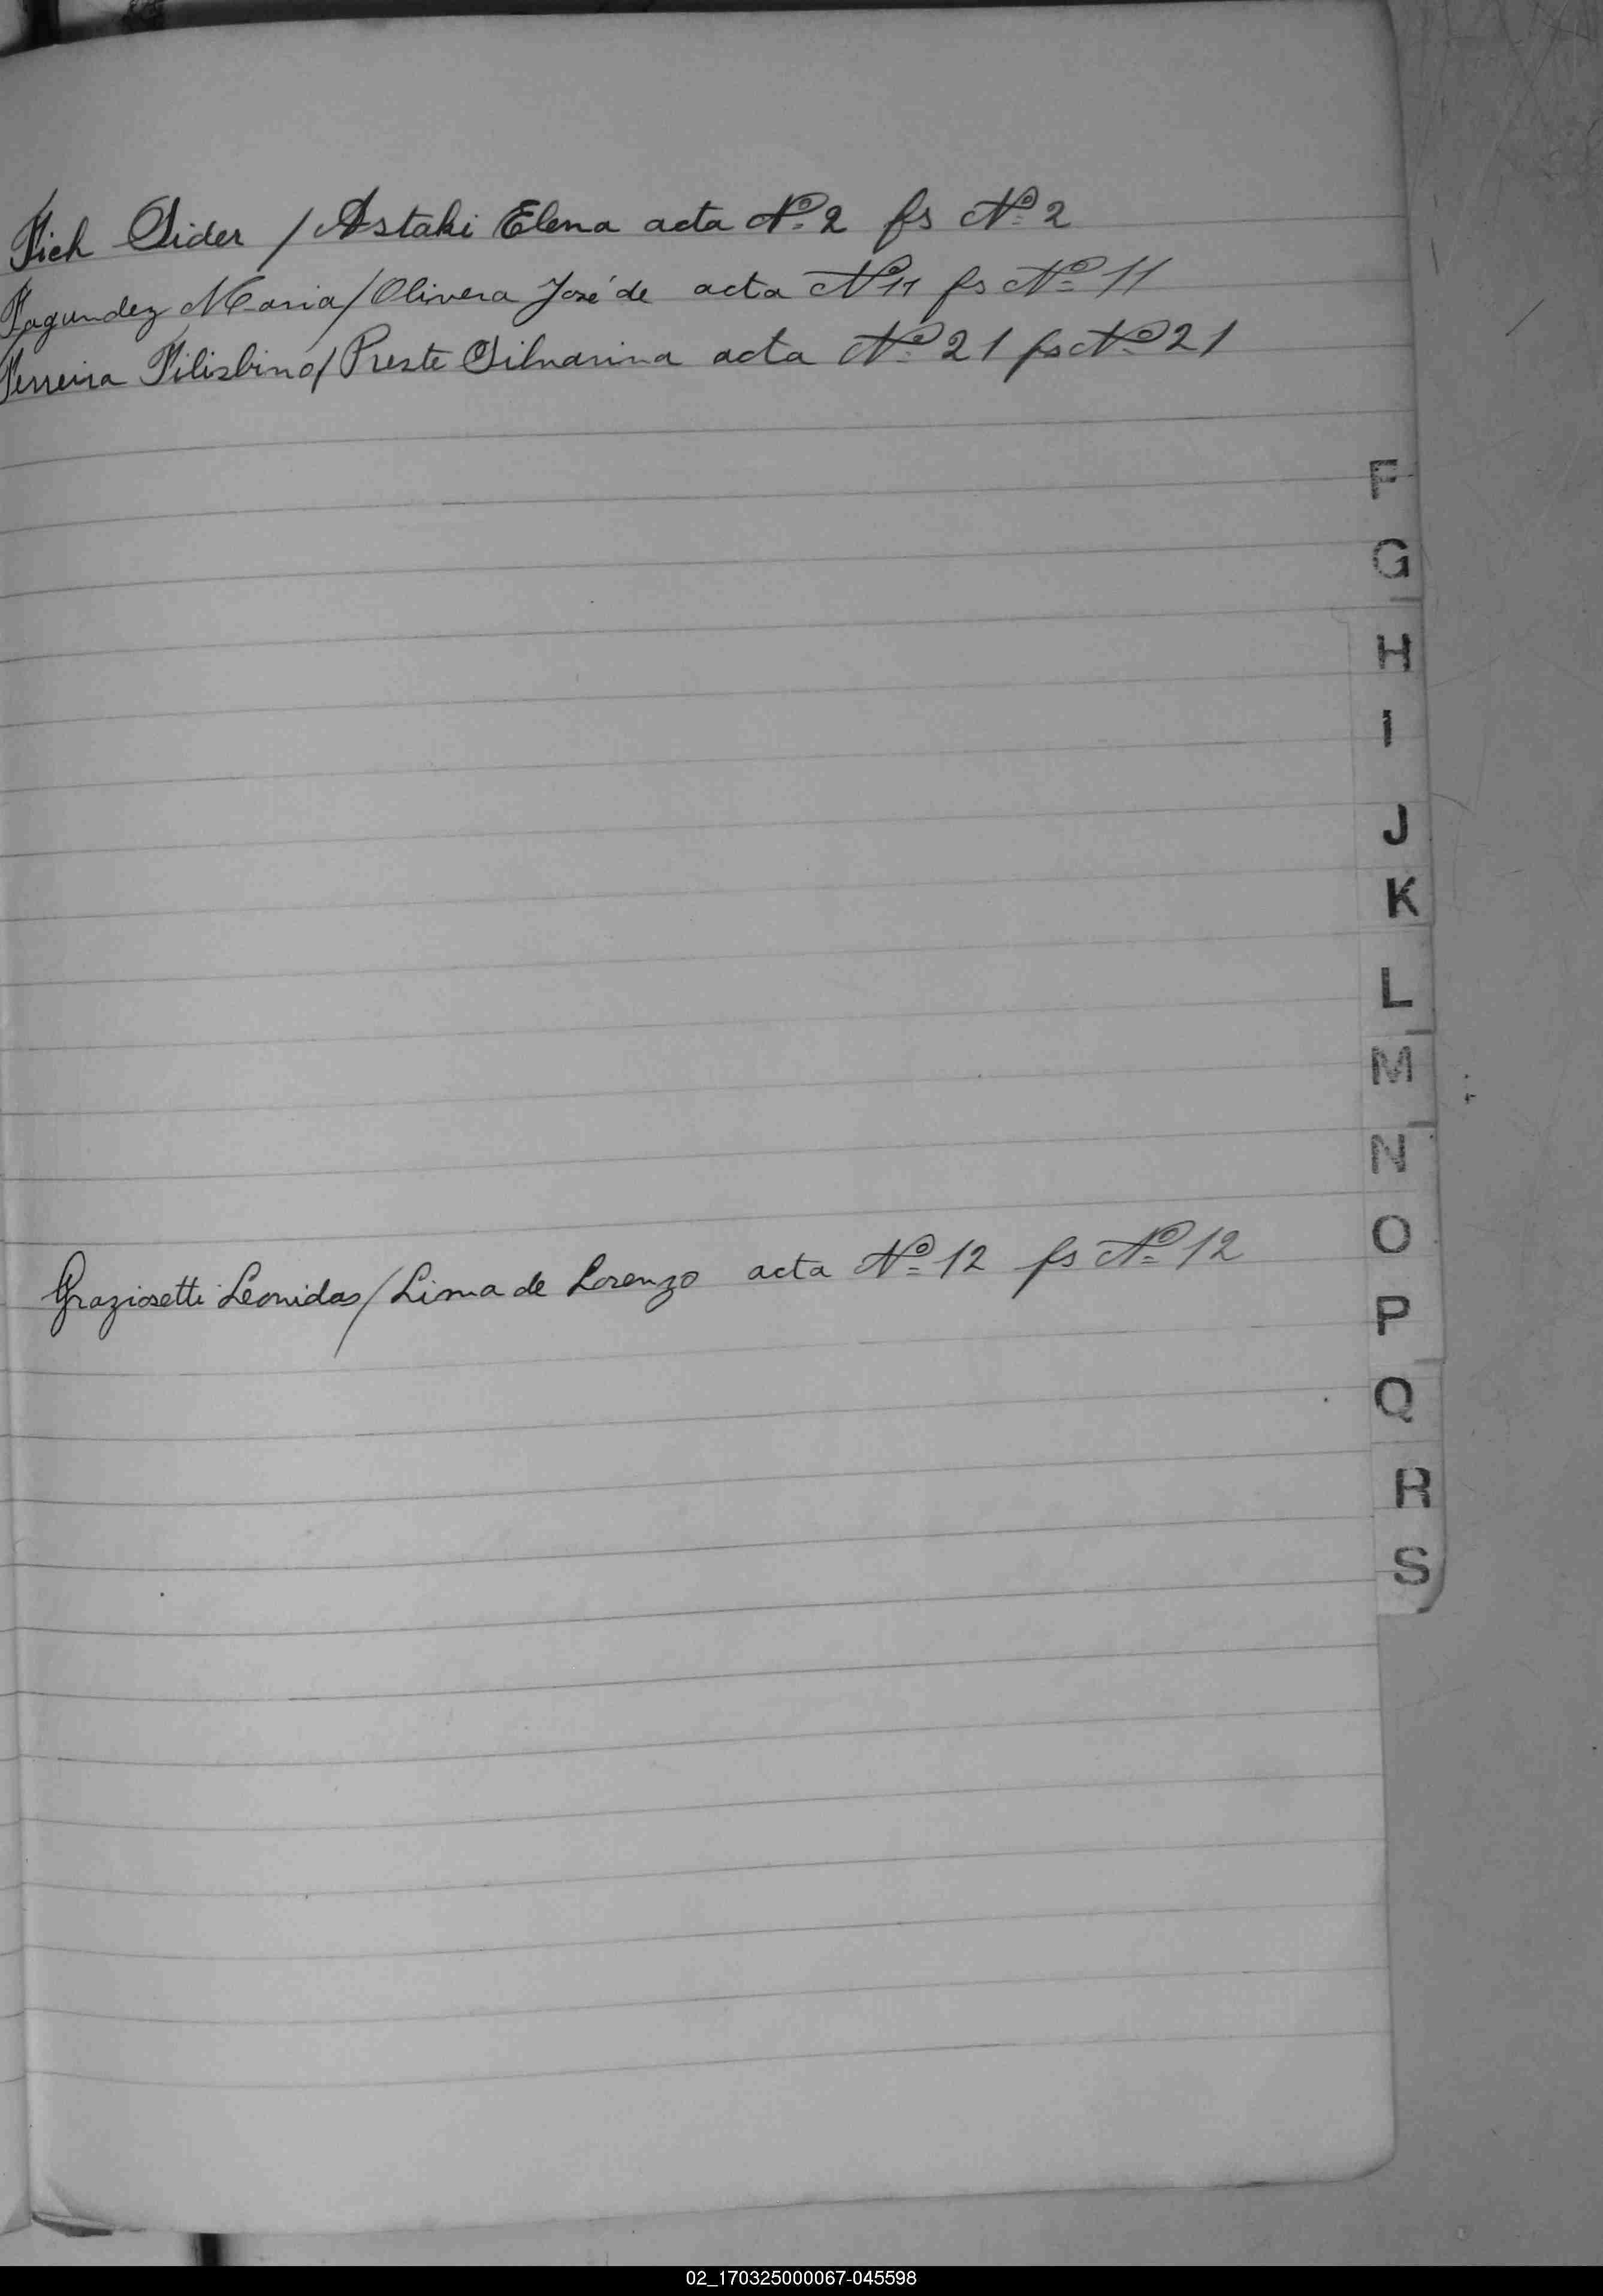 Fich Sider / Astaki Elena acta Nº 2 fs Nº 2
Fagundez Maria / Olivera José de acta Nº 11 fs Nº 11
Ferreira Filisbino / Preste Silvarina acta Nº 21 fs Nº 21
F
G
H
I
J
K
L
M
N
O
Graziosetti Leonidas / Lima de Lorenzo acta Nº 12 fs Nº 12
P
Q
R
S
02_170325000067-045598